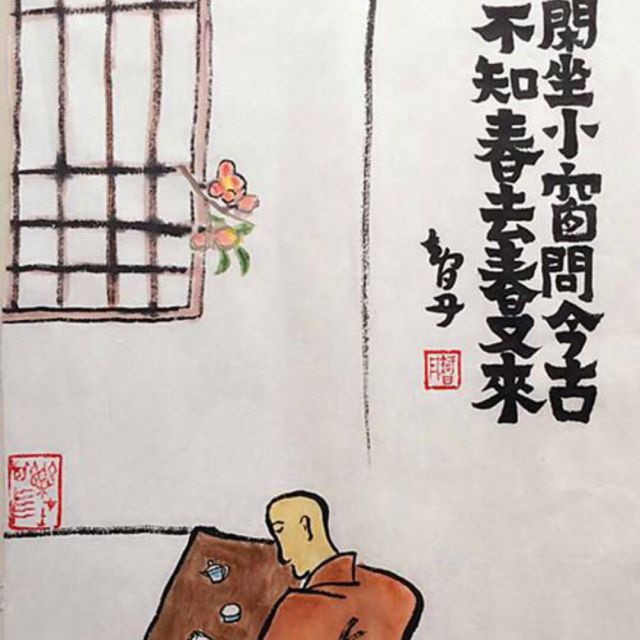 閑坐小窗問今古
不知春去春又來
智丹